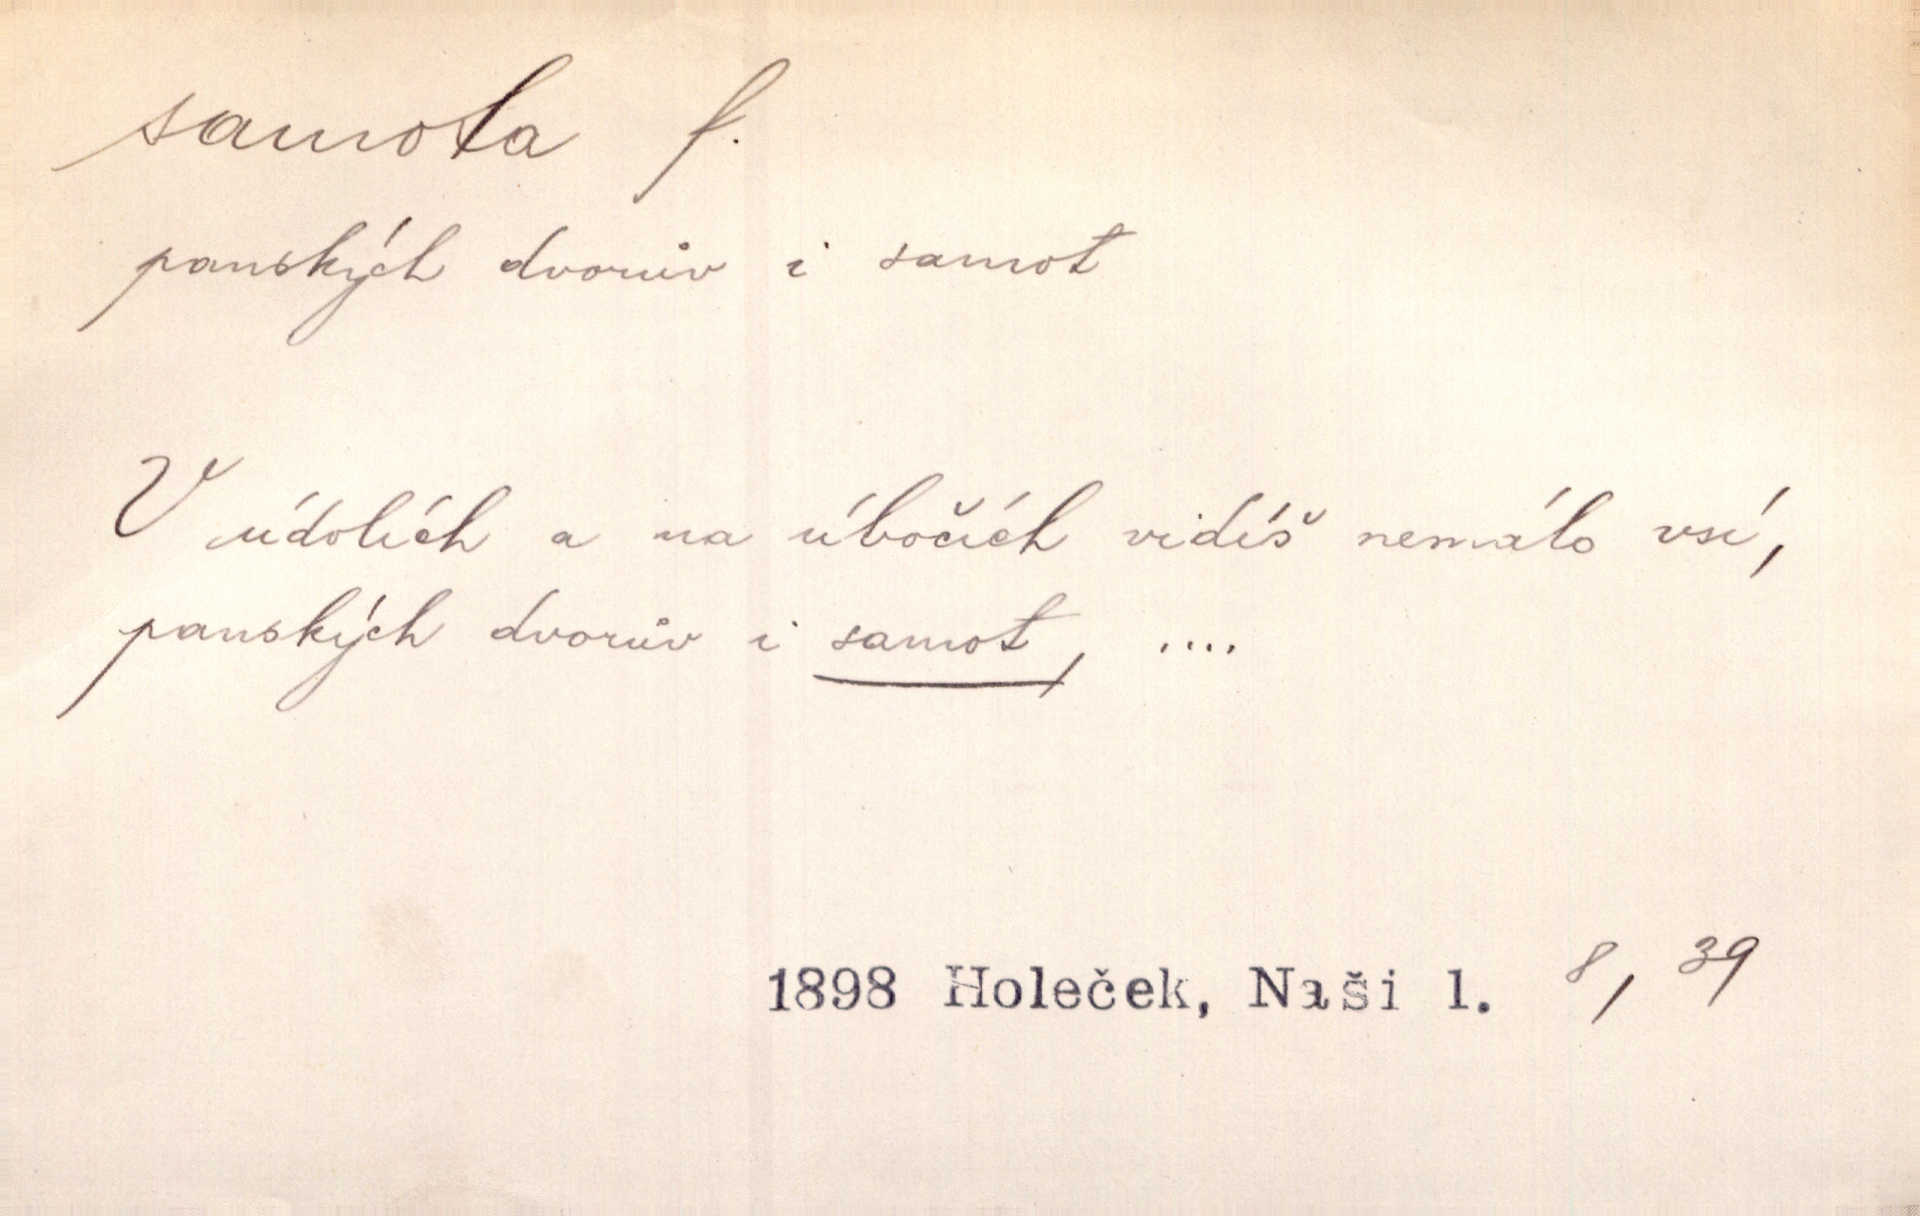 samota f.
panských dvorův i samot
V údolích a na úbočích vidíš nemálo vsí,
panských dvorův i samot, ....
1898 Holeček, Naši l. 8, 39